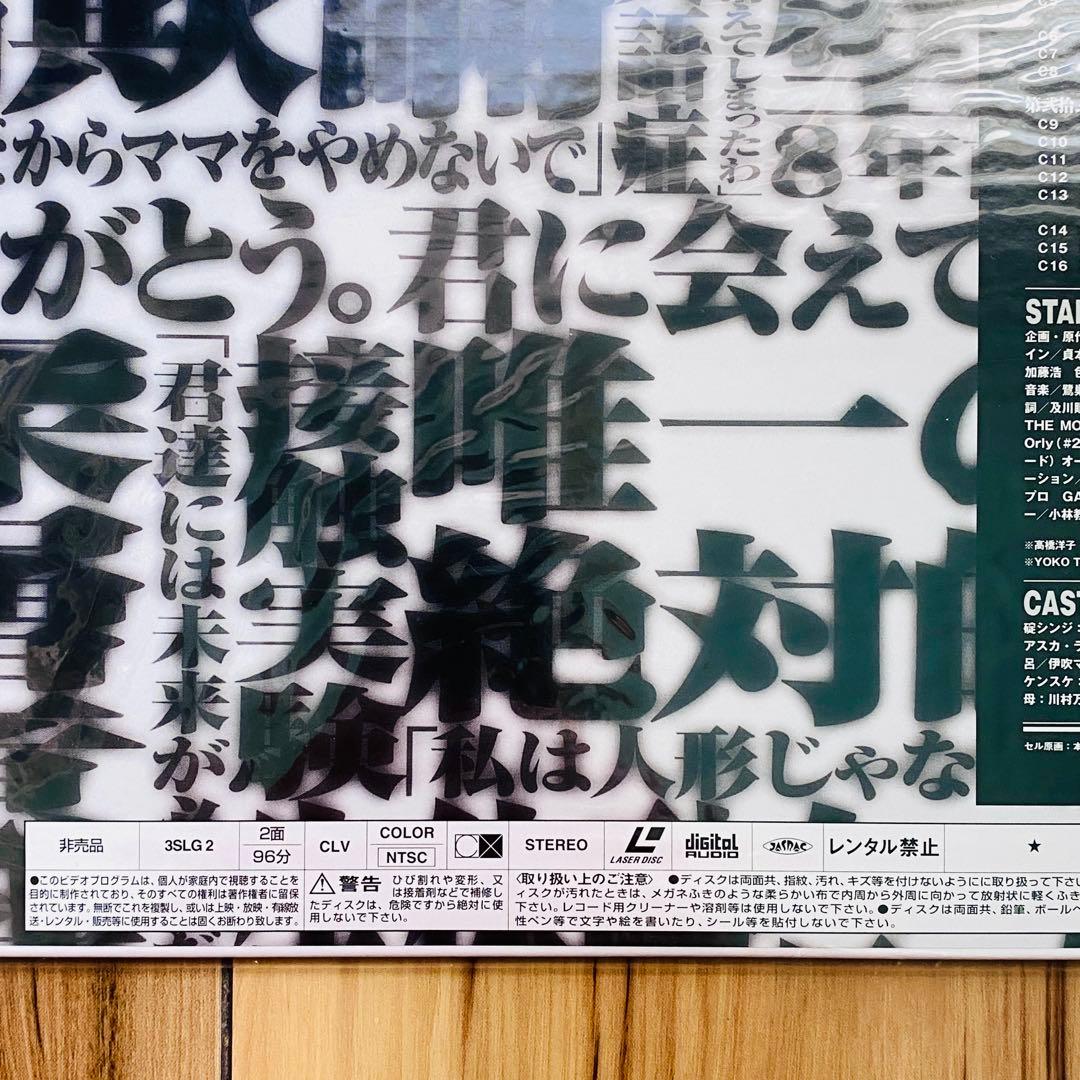 からママをやめないで」
語症
えてしまったわ」
8年
がとう。君に会えて
「君達には未来が
接触実験
唯一の
絶対
「私は人形じゃな
C6
C7
C8
第弐拾
C9
C10
C11
C12
C13
C14
C15
C16
企画・原作
イン／貞本
加藤浩
音楽／鷺巣
詞／及川
THE MO
Orly(#2
ード）オー
ーション／
プロ GA
ー／小林教
※高橋洋子
※YOKO T
CAS
碇シンジ：
アスカ・ラ
呂／伊吹マ
ケンスケ：
母：川村万
セル原画：本
非売品 3SLG 2 2面 96分 CLV COLOR NTSC STEREO LASER DISC digital AUDIO JASRAC レンタル禁止 ★
●このビデオプログラムは、個人が家庭内で視聴することを
目的に制作されており、そのすべての権利は著作権者に留保
されています。無断でこれを複製し、或いは上映・放映・有線放
送・レンタル・販売等に使用することは固くお断わり致します。
警告 ひび割れや変形、又
は接着剤などで補修し
たディスクは、危険ですから絶対に使
用しないで下さい。
〈取り扱い上のご注意〉 ●ディスクは両面共、指紋、汚れ、キズ等を付けないようにに取り扱って下さい
ィスクが汚れたときは、メガネふきのような柔らかい布で内周から外周に向かって放射状に軽くふき
下さい。レコード用クリーナーや溶剤等は使用しないで下さい。●ディスクは両面共、鉛筆、ボールペ
性ペン等で文字や絵を書いたり、シール等を貼付しないで下さい。